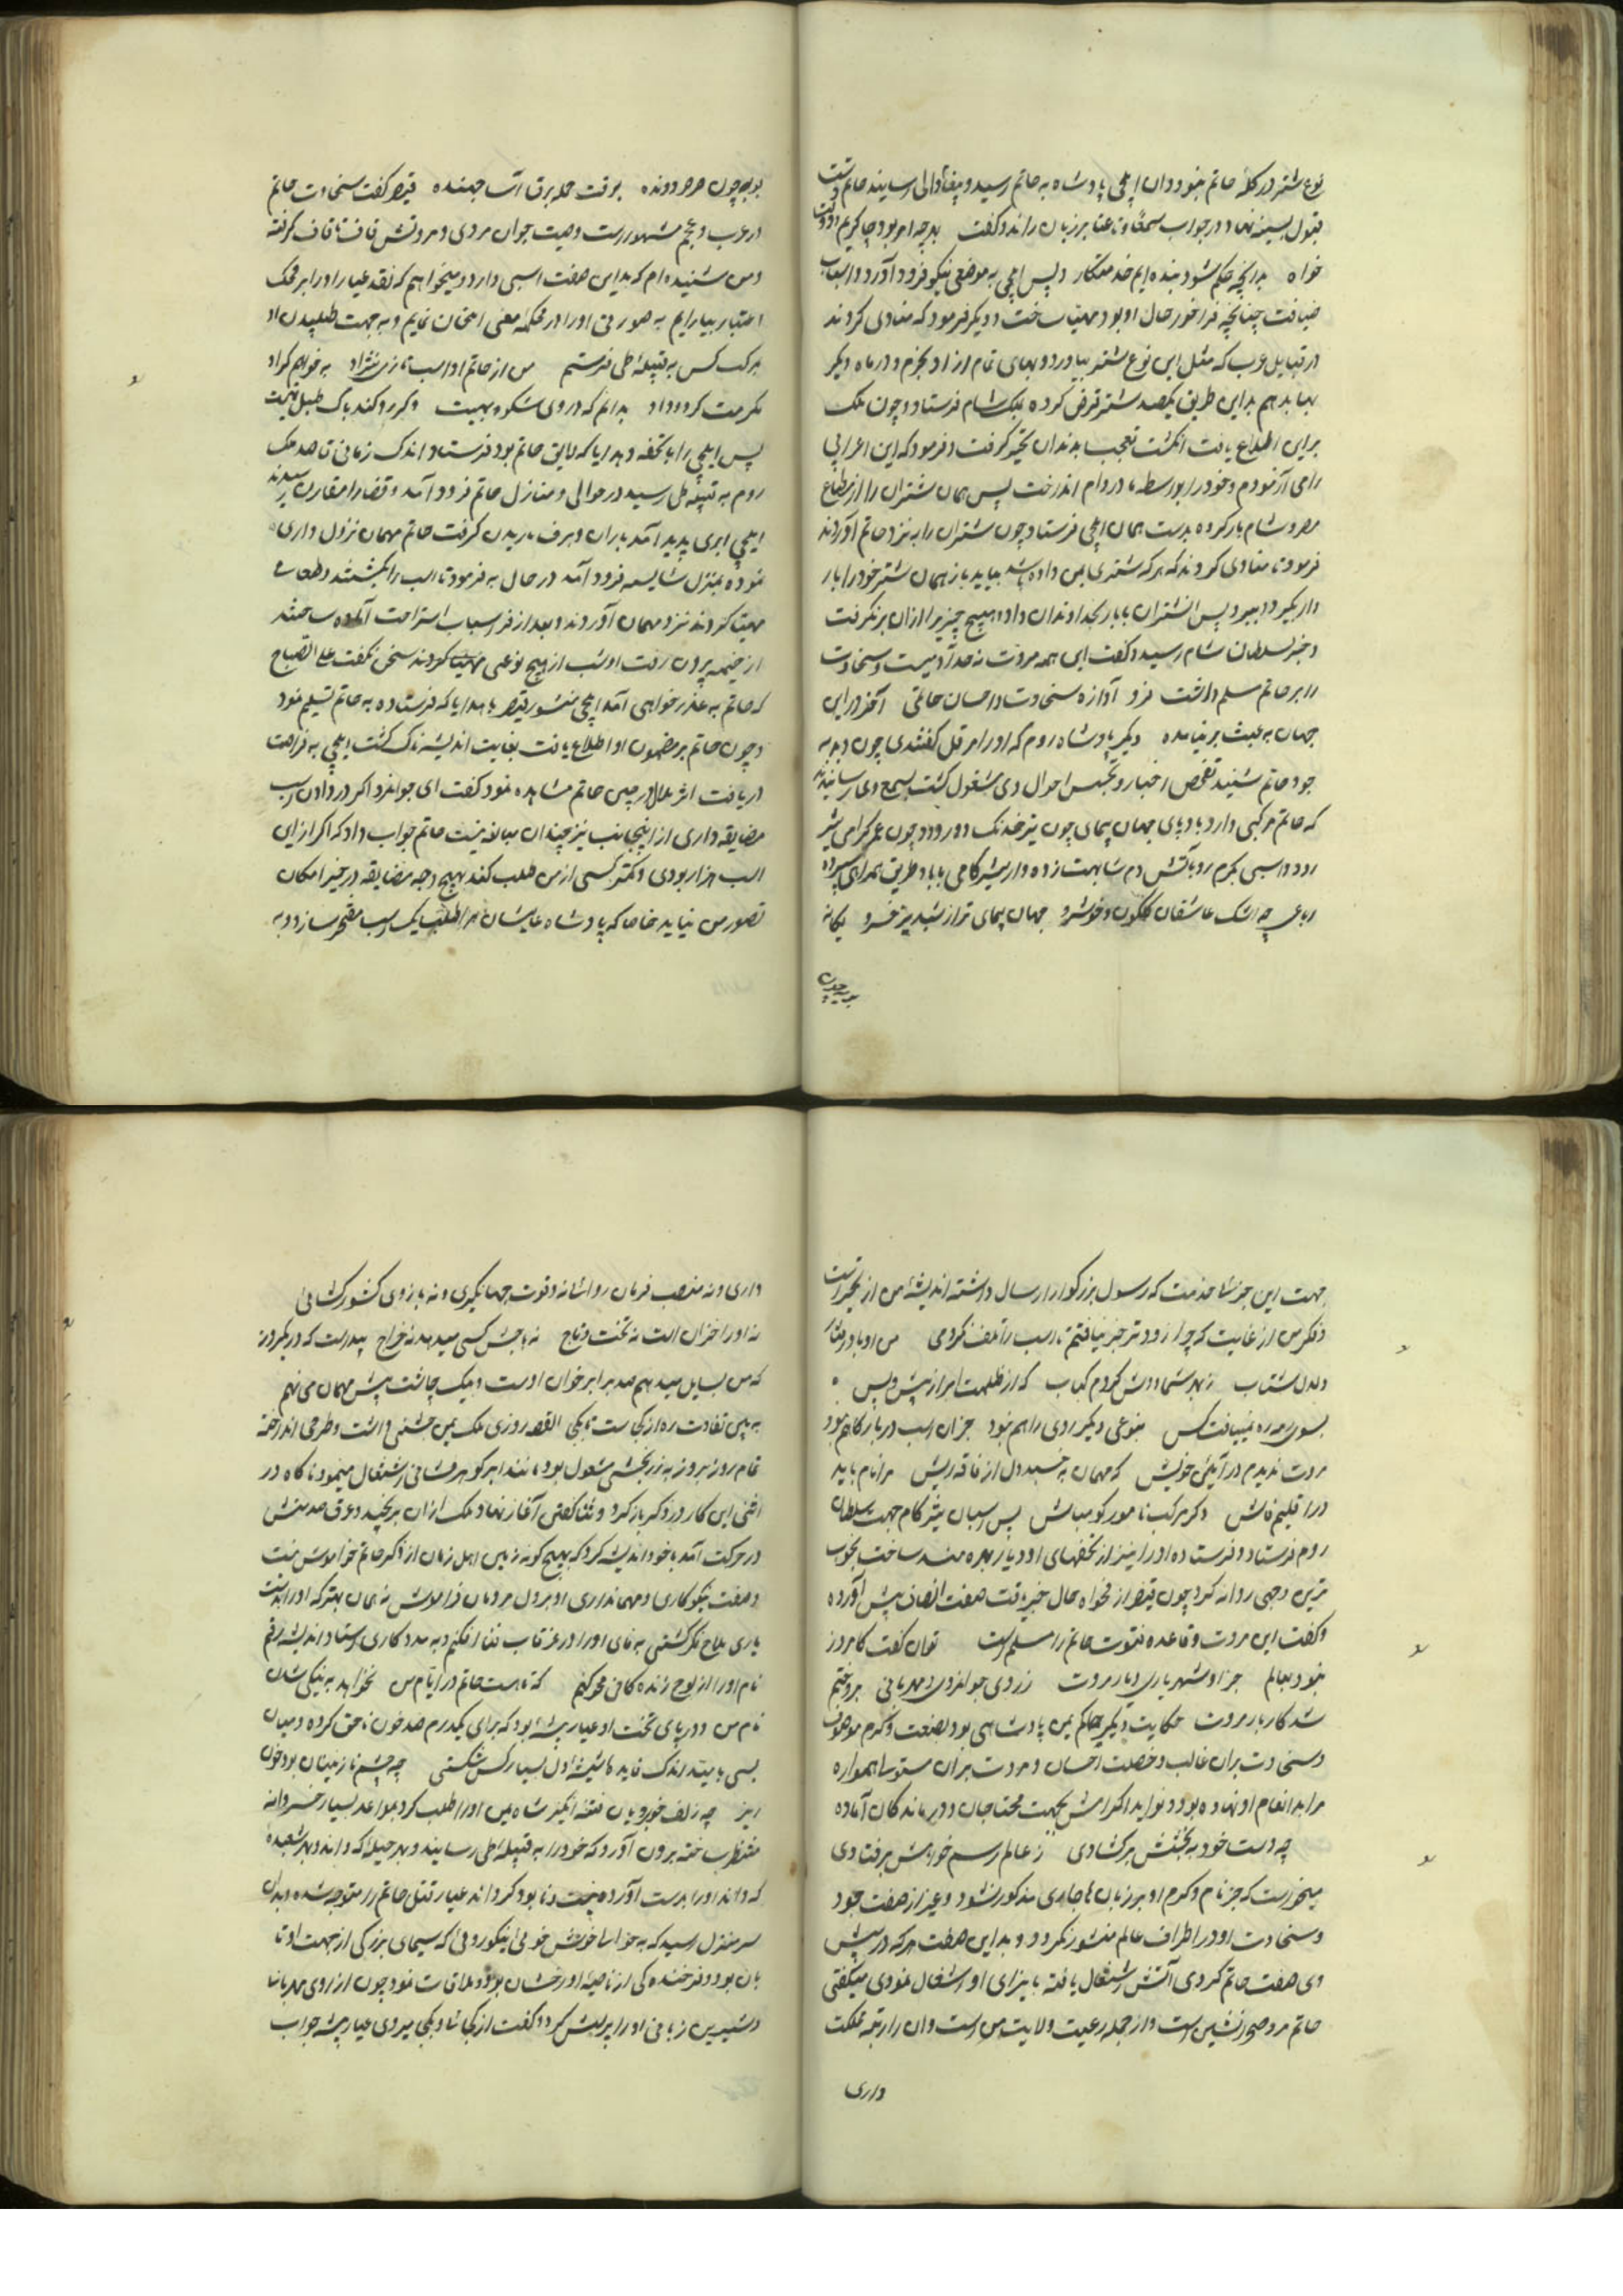 نوع شتر در گله حاتم نبود و ان ایلچی پادشاه به حاتم رسید و پیغام والی رسانید حاتم دست
قبول بسینه نهاد و در جواب سمعا و طاعتا بر زبان راند و گفت بهرچه امر بود چاکریم و دولت
خواه بدانچه حکم شود بنده ایم خدمتکار و پس ایلچی به موضعی نیکو فرود آورد و اسباب
ضیافت چنانچه فراخور حال او بود مهیا ساخت و دیگر فرمود که منادی کردند
در قبایل عرب که مثل این نوع شتر بیاورد و بهای تمام از او بخرم و در ماه دیگر
بها بدهم بداین طریق یکصد شتر قرض کرده بملک شام فرستاد و چون ملک
براین اطلاع یافت انگشت تعجب بدندان تحیر گرفت و فرمود که این اعرابی
رامی آزمودم و خود را بواسطه ما در وام انداخت پس همان شتران را از متاع
مصر و شام بار کرده بدست همان ایلچی فرستاد چون شتران را به نزد حاتم آوردند
فرمود تا منادی کردند که هر که شتری بمن داده باشد بیاید باز همان شتر خود را با بار
دار بگیرد و ببرد پس آن شتران با بار بخداوندان داد و هیچ چیز برا از ان برنگرفت
و خبر بسلطان شام رسید و گفت این همه مروت نه حد آدمیست و سخاوت
را بر حاتم مسلم داشت فرد آوازه سخاوت و احسان حاتمی آخر در این
جهان به عبث بر نیامده دیگر پادشاه روم که او را هرقل گفتندی چون دبدبه
جود حاتم شنید تفحص اخبار و تجسس احوال وی مشغول گشت بسمع وی رسانیدند
که حاتم مرکبی دارد بادپای جهان پیمای چون تیر خدنک دو رود و چون عمر گرامی تیز
رود و اسبی گرم رو باتش دم مشابهت زده و از تیز گامی با باد طریق همراهی سپرده
رباعی چه اشک عاشقان گلگون و خوشرو جهان پیمای تر از شبدیز خسرو یگانه
بوبه چون
بوبه چون صرصر دونده بوقت حمله برق آسا جهنده قیصر گفت سخاوت حاتم
در عرب و عجم مشهور است وصیت جوان مردی و مروتش قاف تا قاف گرفته
و من شنیده ام که بداین صفت اسبی دارد و میخواهم که نقد عیار او را بر محک
اعتبار بیازمایم به صورتی او را در محکمه معنی امتحان نمایم و به جهت طلبیدن او
مرکب کس به قبیله طی فرستم من از حاتم او اسب تازی نژاد به خواهم گر او
مکرمت کرد و داد بدانم که در وی شکوه مهیست و گر رد کند بانگ طبل تهیست
پس ایلچی را با تحفه و هدایا که لایق حاتم بود فرستاد و اندک زمانی قاصد ملک
روم به قبیله طی رسید در حوالی و منازل حاتم فرود آمد و قضا را مقارن رسیدن
ایلچی ابری پدید آمد باران و برف باریدن گرفت حاتم مهمان نزول داری
نموده بمنزل شایسه فرود آمد در حال به فرمود تا اسب را بکشتند و طعامی
مهیا کردند نزد مهمان آوردند و بعد از فراغ اسباب استراحت آماده ساختند
از خیمه بیرون رفت او شب از هیچ نوعی مهیا کردند سخن نگفت علی الصباح
که حاتم به عذر خواهی آمد ایلچی منشور قیصر با هدایا که فرستاده به حاتم تسلیم نمود
و چون حاتم بر مضمون او اطلاع یافت بغایت اندیشه ناک گشت ایلچی به فراست
دریافت اثر ملال از جبین حاتم مشاهده نمود گفت ای جوانمرد اگر در دادن اسب
مضایقه داری از اینجانب نیز چندان مبالغه نیست حاتم جواب داد که اگر از این
اسب هزار بودی و کمتر کسی از من طلب کند بهیچ وجه مضایقه در حیز امکان
تصور من نیاید خاصا که پادشاه عالیشان مرا بطلب یک اسب مفتخر سازد و به
جهت این جزئیا خدمت که رسول بزرگوار ارسال داشته اندیشه من از تحیر است
و فکر من از غایت که چرا زودتر خبر نیافتم تا اسب را تلف نکردمی من او باد رفتار
دلدل شتاب ز بهر شما دوش کردم کباب که از ظلمت ابر از پیش و پس
بسوی رمه ره نمییافت کس بنوعی دیگر روی راهم نبود جز آن اسب در بارگاهم نبود
مروت ندیدم در آیین خویش که مهمان به خسبد دل از فاقه ریش مرا نام باید
در اقلیم فاش دگر مرکب نامور گو مباش پس اسبان تیز گام جهت سلطان
روم فرستاد و فرستاده او را نیز از تحفهای او دیار بهره مند ساخت بخوب
ترین وجهی روانه کرد چون قیصر از فحواه حال خبر یافت صفت انصاف پیش آورده
و گفت این مروت و قاعده فتوت حاتم را مسلم است توان گفت کامروز
نبود بعالم جز او شهریاری دیار مروت ز روی جوانمردی و مهربانی بر و ختم
شد کار بار مروت حکایت دیگر حاکم یمن پادشاهی بود بصنعت و کرم موصوف
و سخاوت بران غالب و خصلت احسان و مروت بران مستوسا همواره
مراید انعام او نهاده بود و نواید اکرامش بجهت محتاجان و درماندگان آماده
چه دست خود به بخشش بر گشادی ز عالم رسم خواهش بر فتادی
میخواست که جز نام و کرم او بر زبان ها جاری مذکور نشود و غیر از صفت جود
و سخاوت او در اطراف عالم منشور نگردد و بداین صفت هر که در پیش
وی صفت حاتم کردی آتش اشتعال یافته با یزای او اشتغال نمودی میگفتی
حاتم مرد صحرانشین است و از جمله رعیت ولایت من است و ان را رتبه مملکت
داری
داری و نه منصب فرمان روا اشانه و قوت جهانگیری و نه بازوی کشور گشائی
نه او را خزان است نه تخت و تاج نه بخشش کسی میدهد نه خراج پیداست که در هر روز
که من بسایل میدهم صد برابر خوان اوست و یک چاشت پیش مهمان می نهم
به بین تفاوت ره از کجا ست تا بکجا القصه روزی ملک یمن جشنی داشت و طرحی انداخته
تمام روز بروز به زر بخشی مشغول بود مانند ابر گوهر فشانی اشتغال مینمود ناگاه در
اثنی این کار در ذکر باز کرد و ثنا گفتی آغاز نهاد ملک از ان برنجید و عرق حسدش
در حرکت آمد با خود اندیشه کرد که بهیچ گونه زبان اهل زمان از ذکر حاتم خاموش نیست
و صفت نیکوکاری و مهمانداری او بر دل مردمان فراموش نه همان بهتر که او را بدست
یاری ملاح فکر کشتی بقای او را در غرقاب فنا افکنم و به مددکاری استاد اندیشه رقم
نام او را از لوح زندگانی محو کنم که تا هست حاتم در ایام من نخواهد به نیکی شدن
نام من و در پای تخت او عیار پیشه بود که برای یکدرم صد خون ناحق کرده و میان
بسی به بیند اندک فایده شیشه دل بسیار کس شکستی چه چشم نازنینان بود خون
ریز چه زلف خوبرویان فتنه انگیز شاه یمن او را طلب کرد بمواعد بسیار خسروانه
مستظهر ساخته برون آورد که خود را به قبیله طی رسانید و بهر حیله که داند و بهر شعبده
که داند او را بدست آورده نیست و نابود گرداند عیار قتل حاتم را متوجه شده بدان
سر منزل رسید که به حواسا خوش خوئی نیکو روئی که سیمای بزرگی از جبهت او تا
بان بود و فرخنده گی از ناصیه او رخشان بود و ملاقات نمود چون از روی مهربانیا
و شیرین زبانی او را پرسش کرد و گفت از کجائی و بکجا میروی عیار پیشه جواب